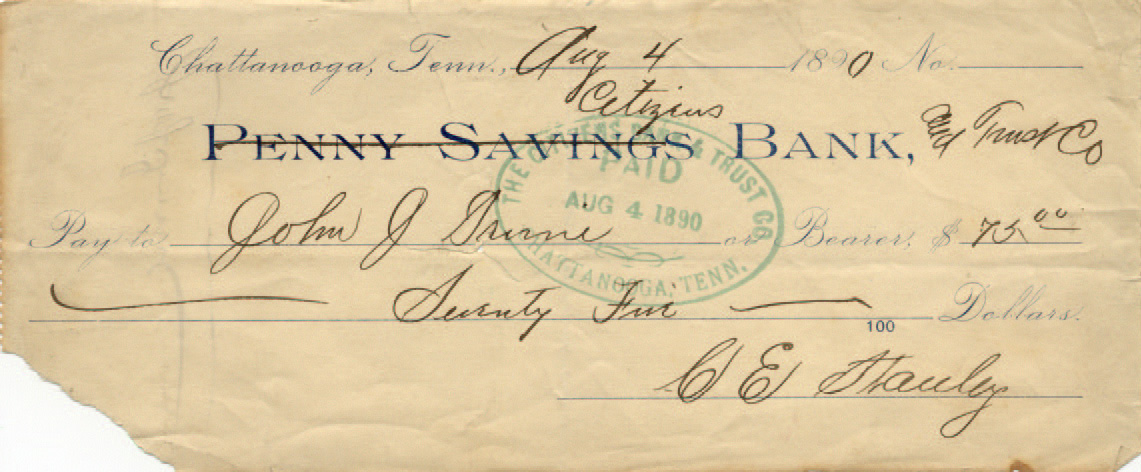 Chattanooga, Tenn., Aug 4 1890 No.
Citizens
PENNY SAVINGS BANK, and Trust Co
THE CITIZENS BANK & TRUST CO.
PAID
AUG 4 1890
CHATTANOOGA, TENN.
Pay to John J or Bearer, $ 75.00
Seventy Five Dollars.
100
C E Stanley